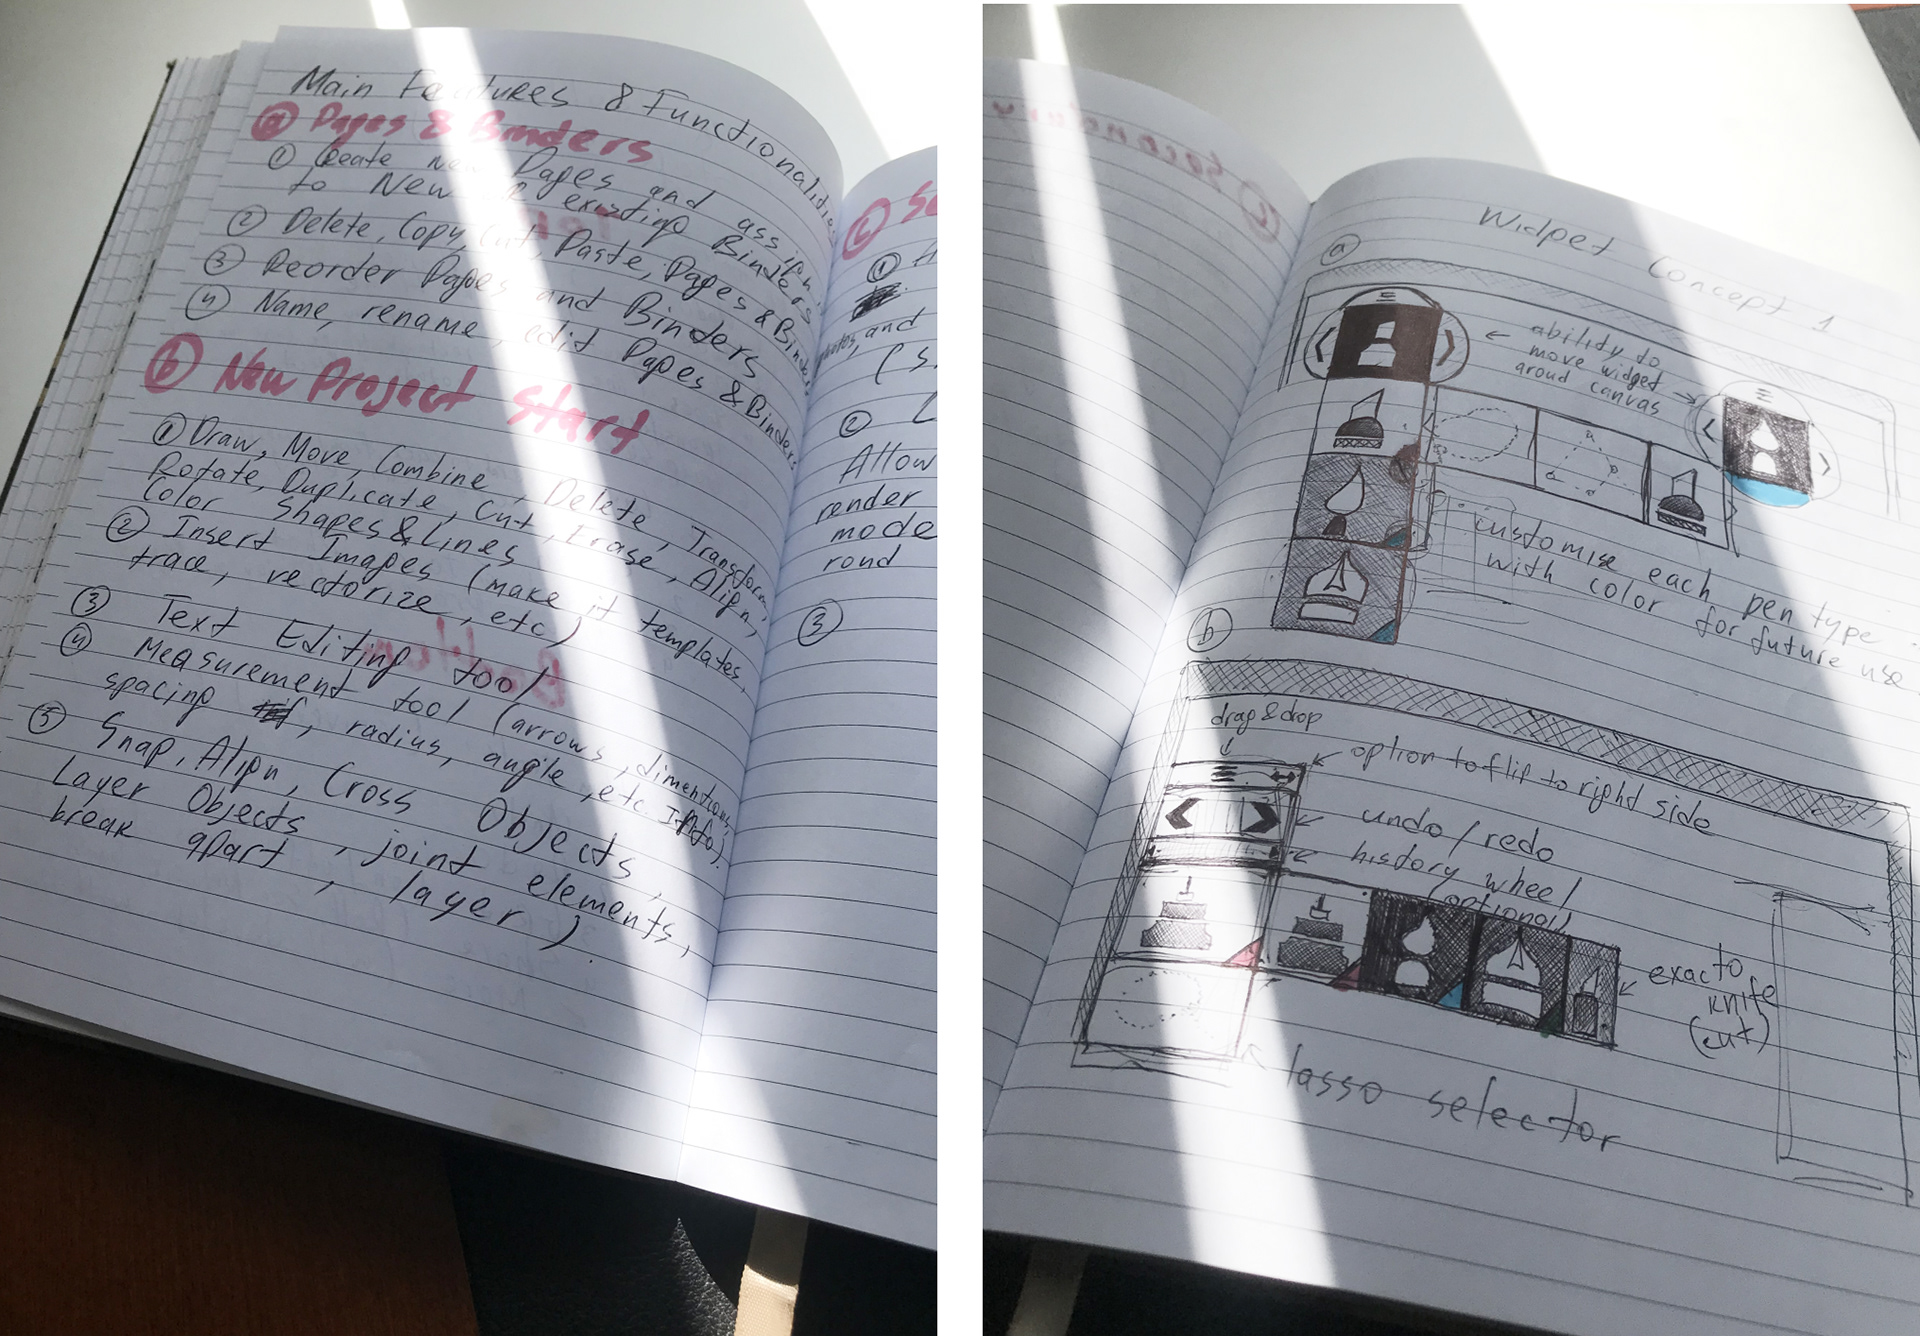 Main Features & Functionalities
a Pages & Binders
1 Create new Pages and assign
to New or existing Binders
2 Delete, Copy, Cut, Paste, Pages & Binders
3 Reorder Pages and Binders
4 Name, rename, edit Pages & Binders
b New Project start
1 Draw, Move, Combine, Delete, Transform,
Rotate, Duplicate, Cut, Erase, Align,
Color Shapes & Lines
2 Insert Images (make it templates,
trace, vectorize, etc)
3 Text Editing tool
4 Measurement tool (arrows, dimentions,
spacing, radius, angle, etc. Info).
5 Snap, Align, Cross Objects,
Layer Objects, joint elements,
break apart, layer).
c
1
and
2
Allow
render
mode
rond
3
Widget Concept 1
a
ability to
move widget
aroud canvas
customise each pen type
with color for future use
b
drag & drop
option to flip to right side
undo / redo
history wheel
(optional)
exacto
knife
(cut)
lasso selector